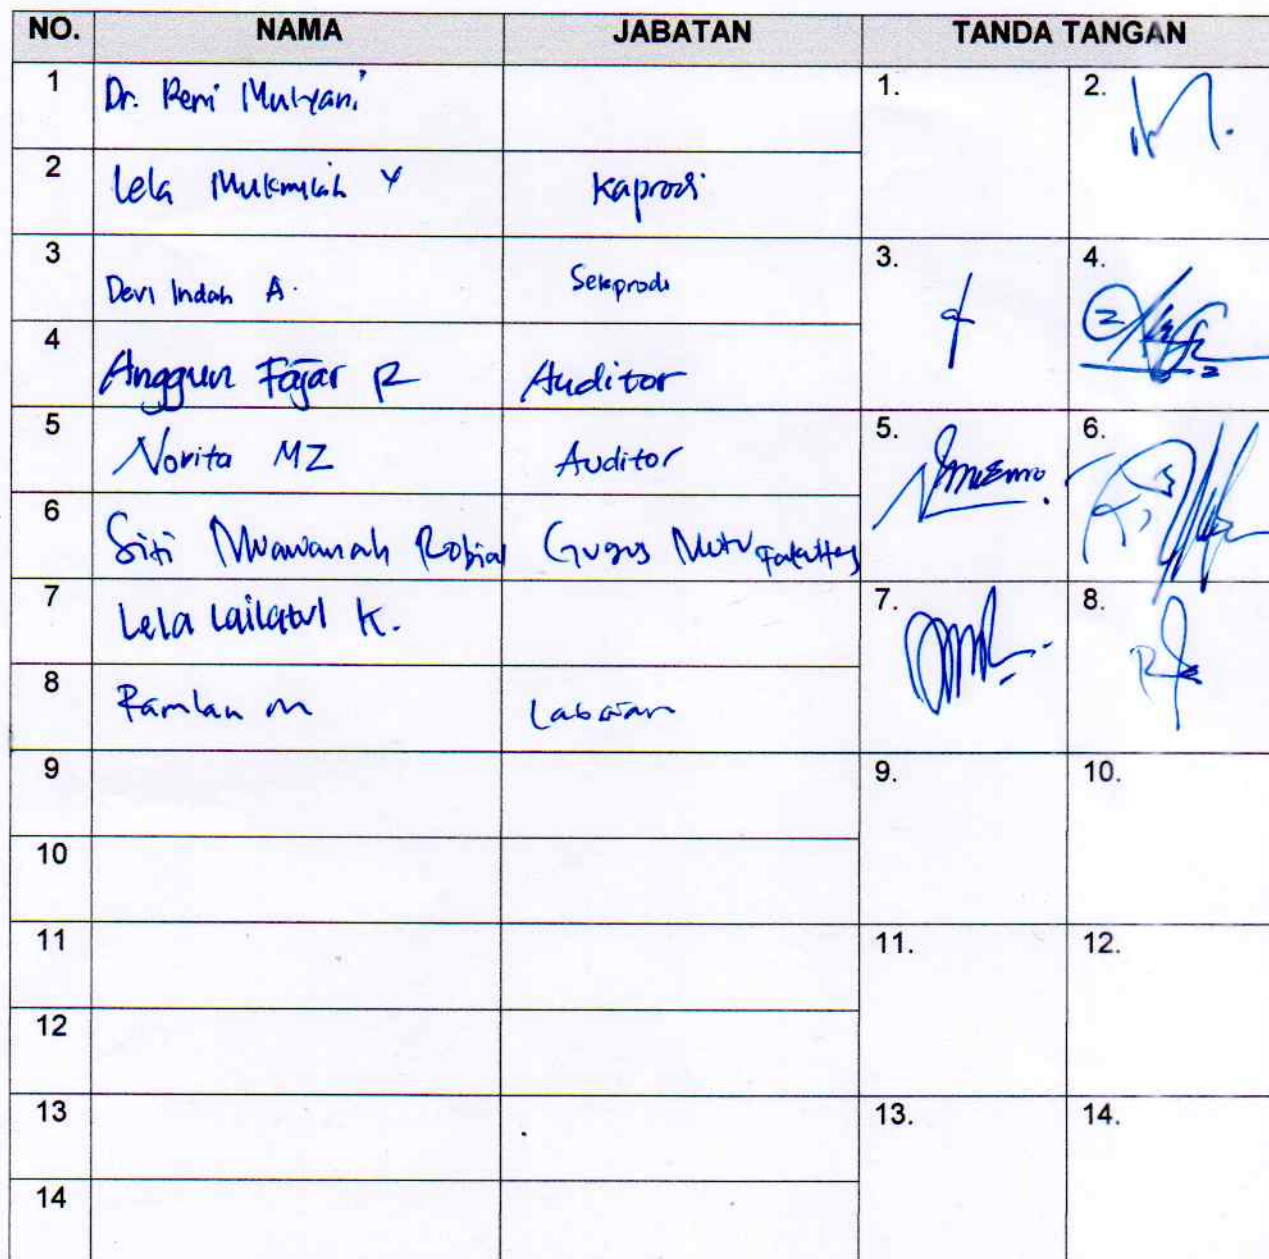 NO. NAMA JABATAN TANDA TANGAN
1 Dr. Reni Mulyani 1. 2.
2 Lela Mukmilah Y Kaprodi
3 Devi Indah A. Sekprodi 3. 4.
4 Anggun Fajar R Auditor
5 Norita MZ Auditor 5. 6.
6 Siti Muawanah Robial Gugus Mutu Fakultas
7 Lela Lailatul K. 7. 8.
8 Ramlan M
9 9. 10.
10
11 11. 12.
12
13 13. 14.
14